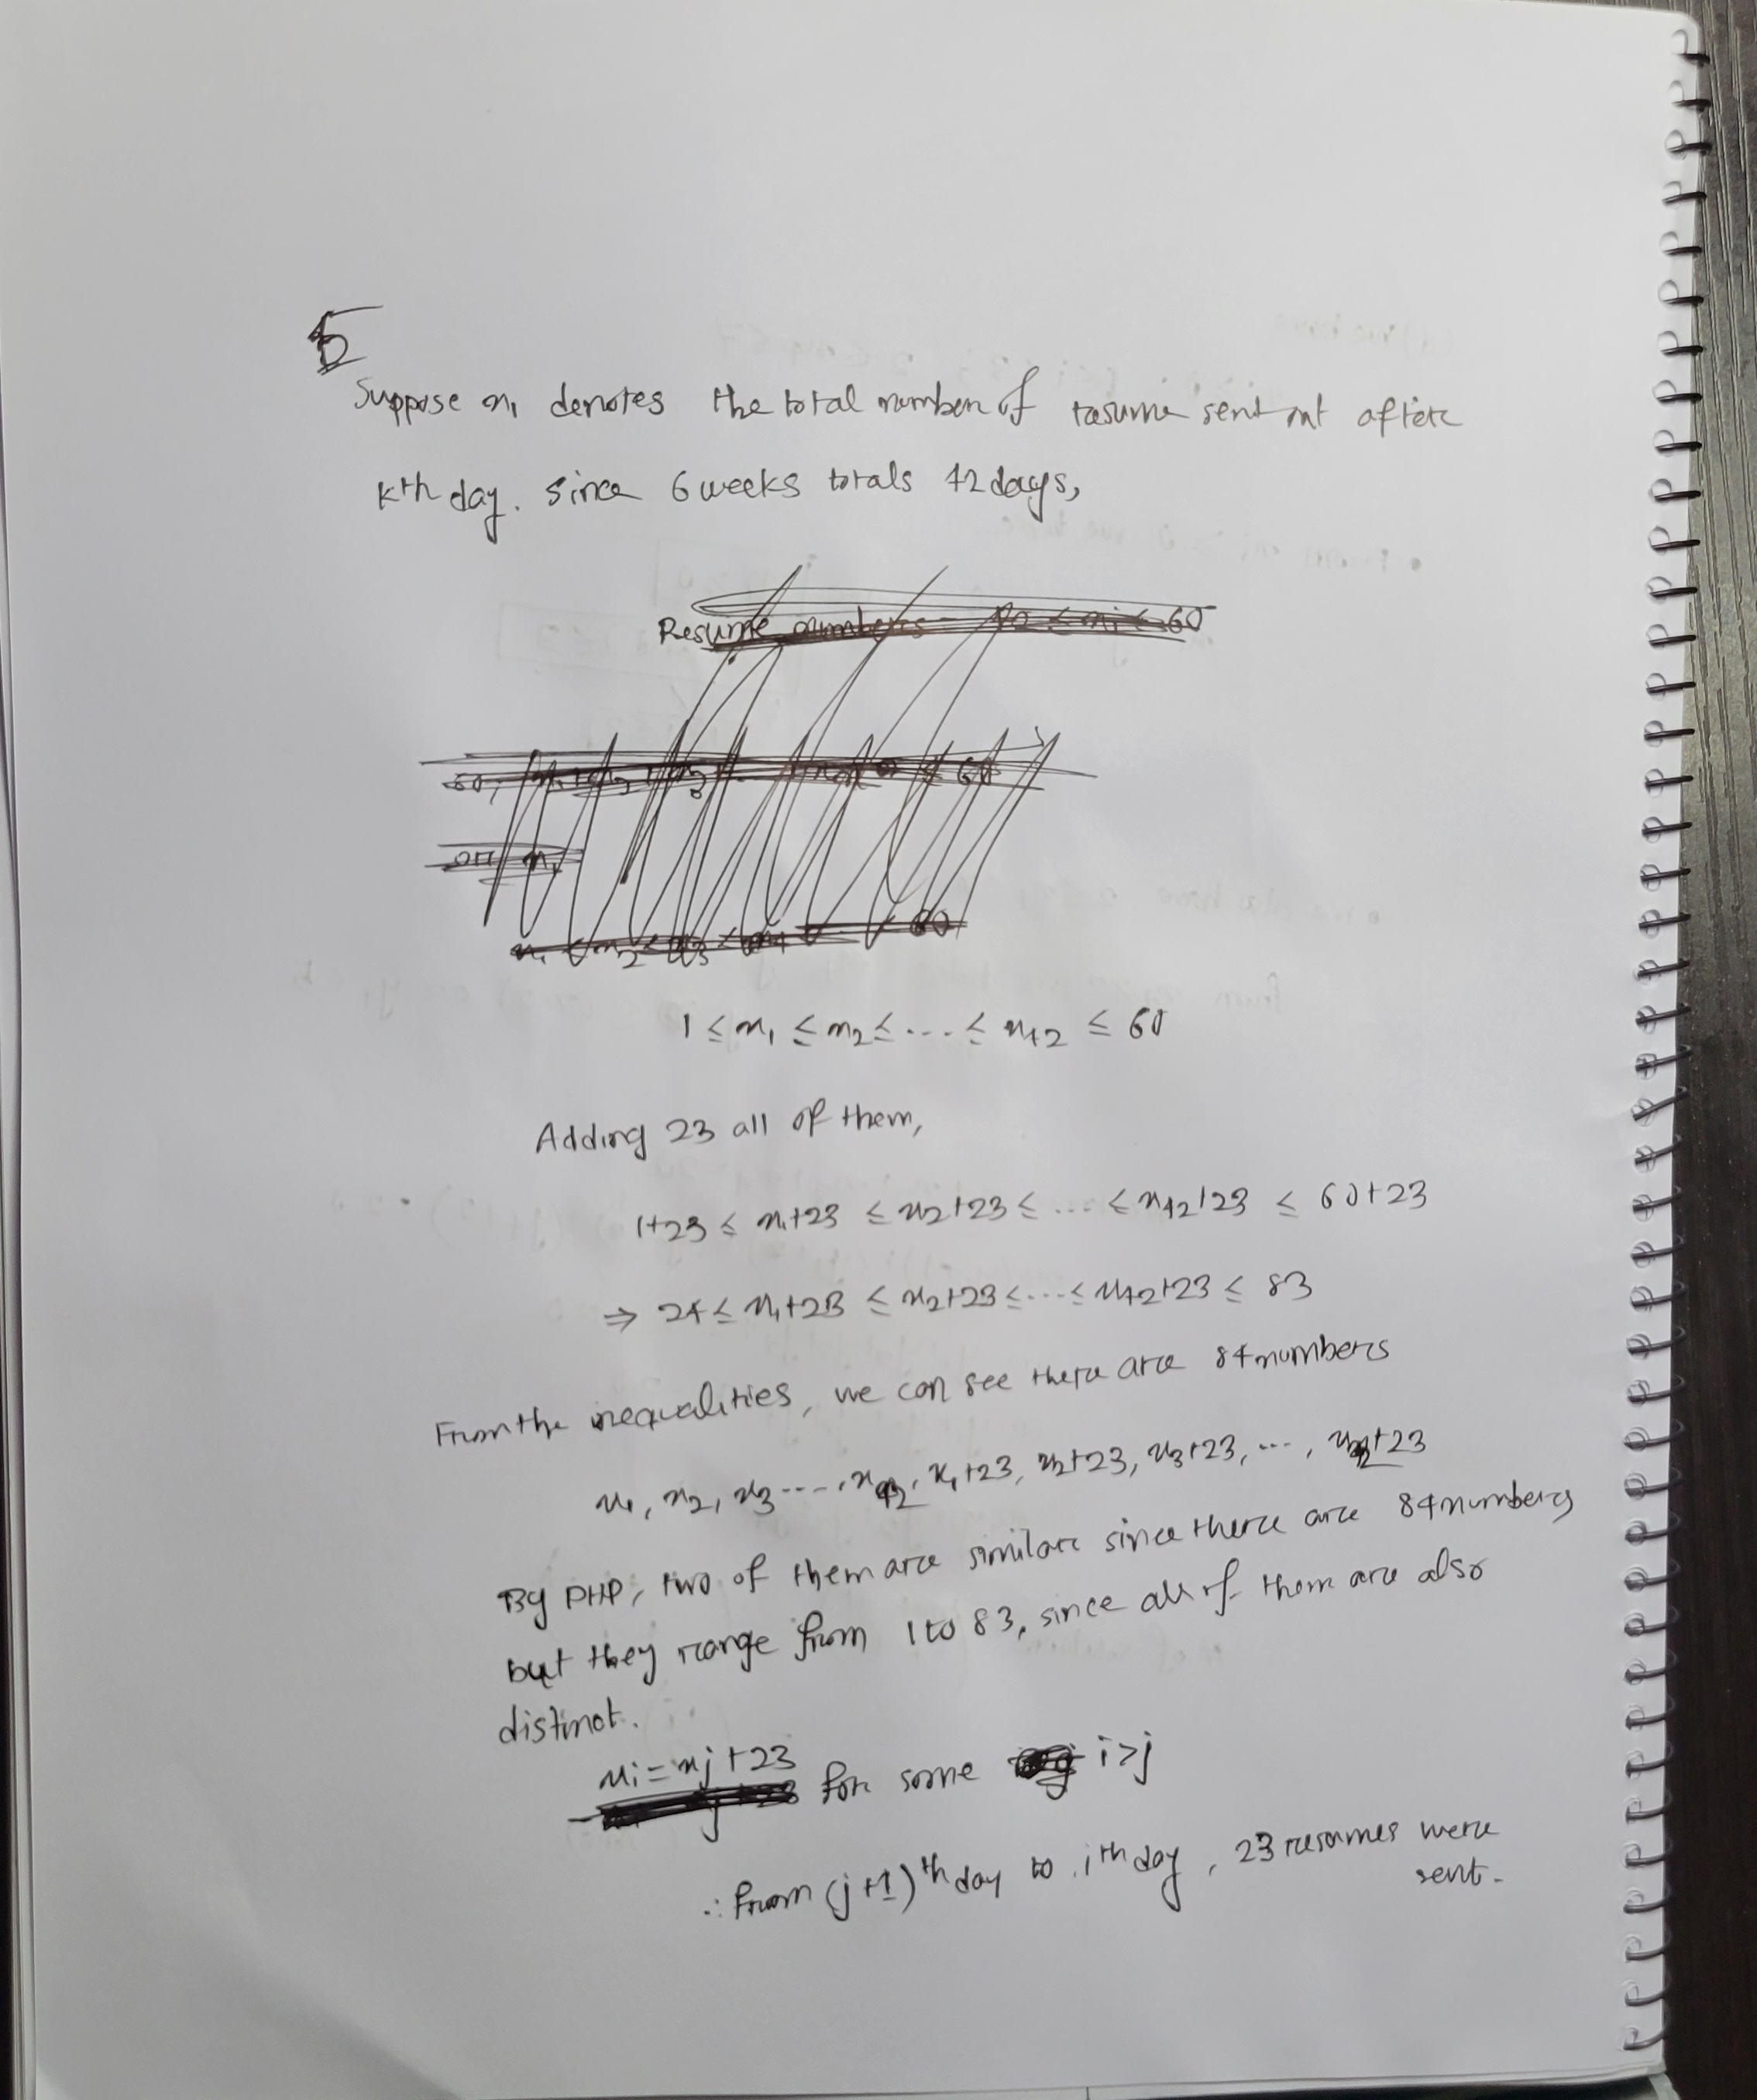 5
Suppose x₁ denotes the total number of resume sent out after
kth day. Since 6 weeks totals 42 days,
Resume numbers
1 ≤ x₁ ≤ x₂ ≤ ... ≤ x₄₂ ≤ 60
Adding 23 all of them,
1+23 ≤ x₁+23 ≤ x₂+23 ≤ ... ≤ x₄₂+23 ≤ 60+23
⇒ 24 ≤ x₁+23 ≤ x₂+23 ≤ ... ≤ x₄₂+23 ≤ 83
From the inequalities, we can see there are 84 numbers
x₁, x₂, x₃ ...., x₄₂, x₁+23, x₂+23, x₃+23, ..., x₄₂+23
By PHP, two of them are similar since there are 84 numbers
but they range from 1 to 83, since all of them are also
distinct.
xi = xj + 23 for some i>j
∴ From (j+1)th day to ith day, 23 resumes were
sent.